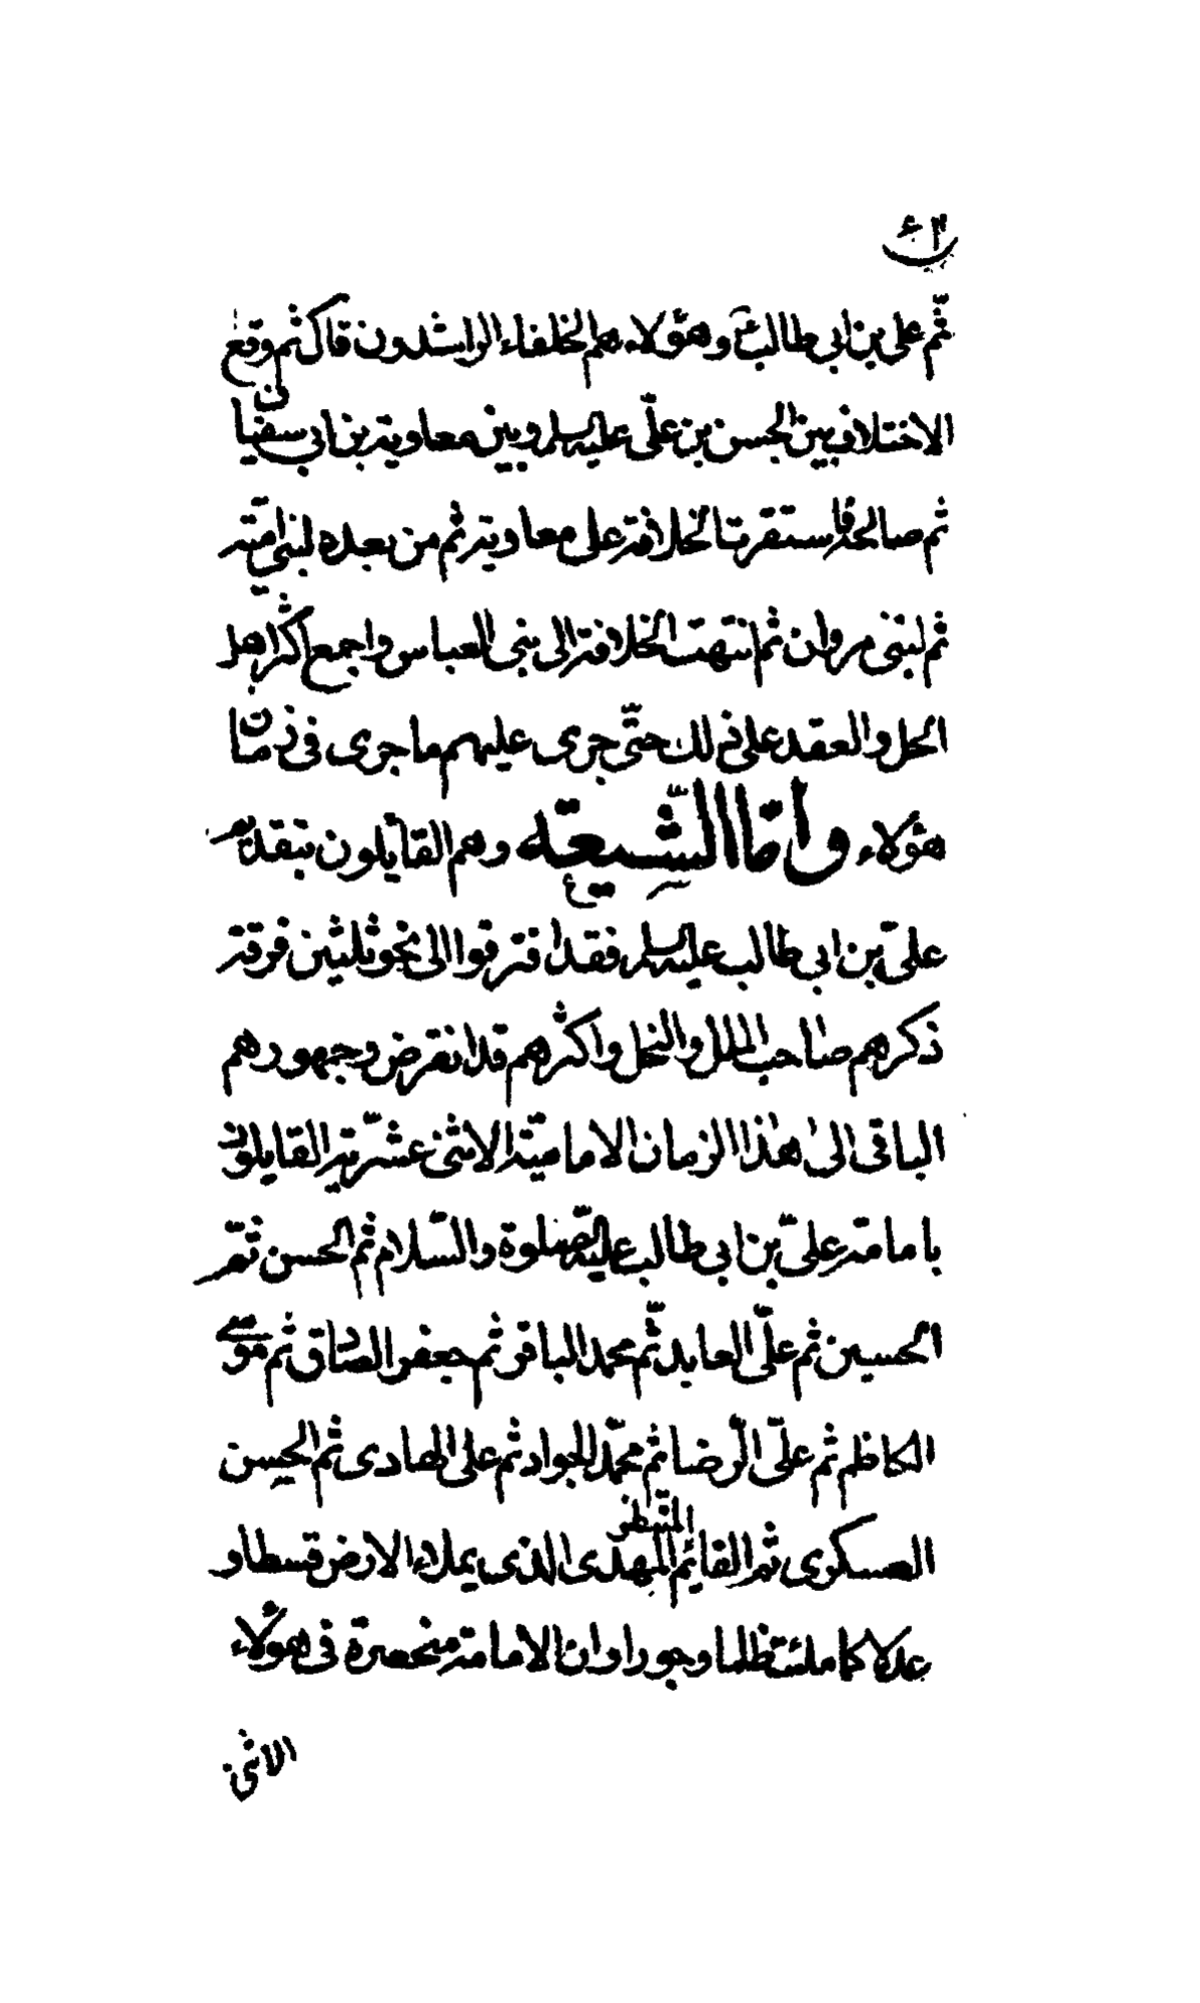 ثم علي بن ابي طالب ع وهؤلاء هم الخلفاء الراشدون قال ثم وقع
الاختلاف بين الحسن بن علّي عليه السلم وبين معاوية بن ابي سفيان
ثم صالحه فاستقرت الخلافة على معاوية ثم من بعده لبنى اميّة
ثم لبنى مروان ثم انتهت الخلافة الى بنى العباس واجمع اكثر اهل
الحل والعقد على ذلك حتّى جرى عليهم ما جرى فى زمان
هؤلاء وامّا الشّيعة وهم القايلون بتقديم
علىّ بن ابى طالب عليه السلم فقد افترقوا الى نحو ثلثين فرقة
ذكرهم صاحب الملل والنحل واكثرهم قد انقرض وجمهورهم
الباقى الى هذا الزمان الاماميّة الاثنى عشريّة القايلون
بامامة علىّ بن ابى طالب عليه الصّلوة والسّلام ثم الحسن ثمّ
الحسين ثم علّى العابد ثمّ محمد الباقر ثم جعفر الصادق ثم موسى
الكاظم ثم علّى الرّضا ثم محمّد الجواد ثم على الهادى ثم الحسن
العسكرى ثم القايم المنتظر المهدى الذى يملاء الارض قسطا و
عدلا كما ملئت ظلما وجورا وان الامامة منحصرة فى هؤلاء
الاثنى